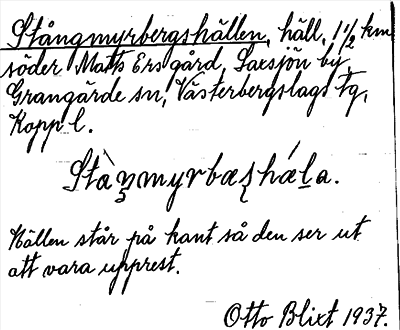 Stångmyrbergshällen, häll, 1 1/2 km
söder Matts Ers gård, Saxsjön by,
Grangärde sn, Västerbergslags fg,
Kopp l.
Hällen står på kant så den ser ut
att vara upprest.
Otto Blixt 1937.